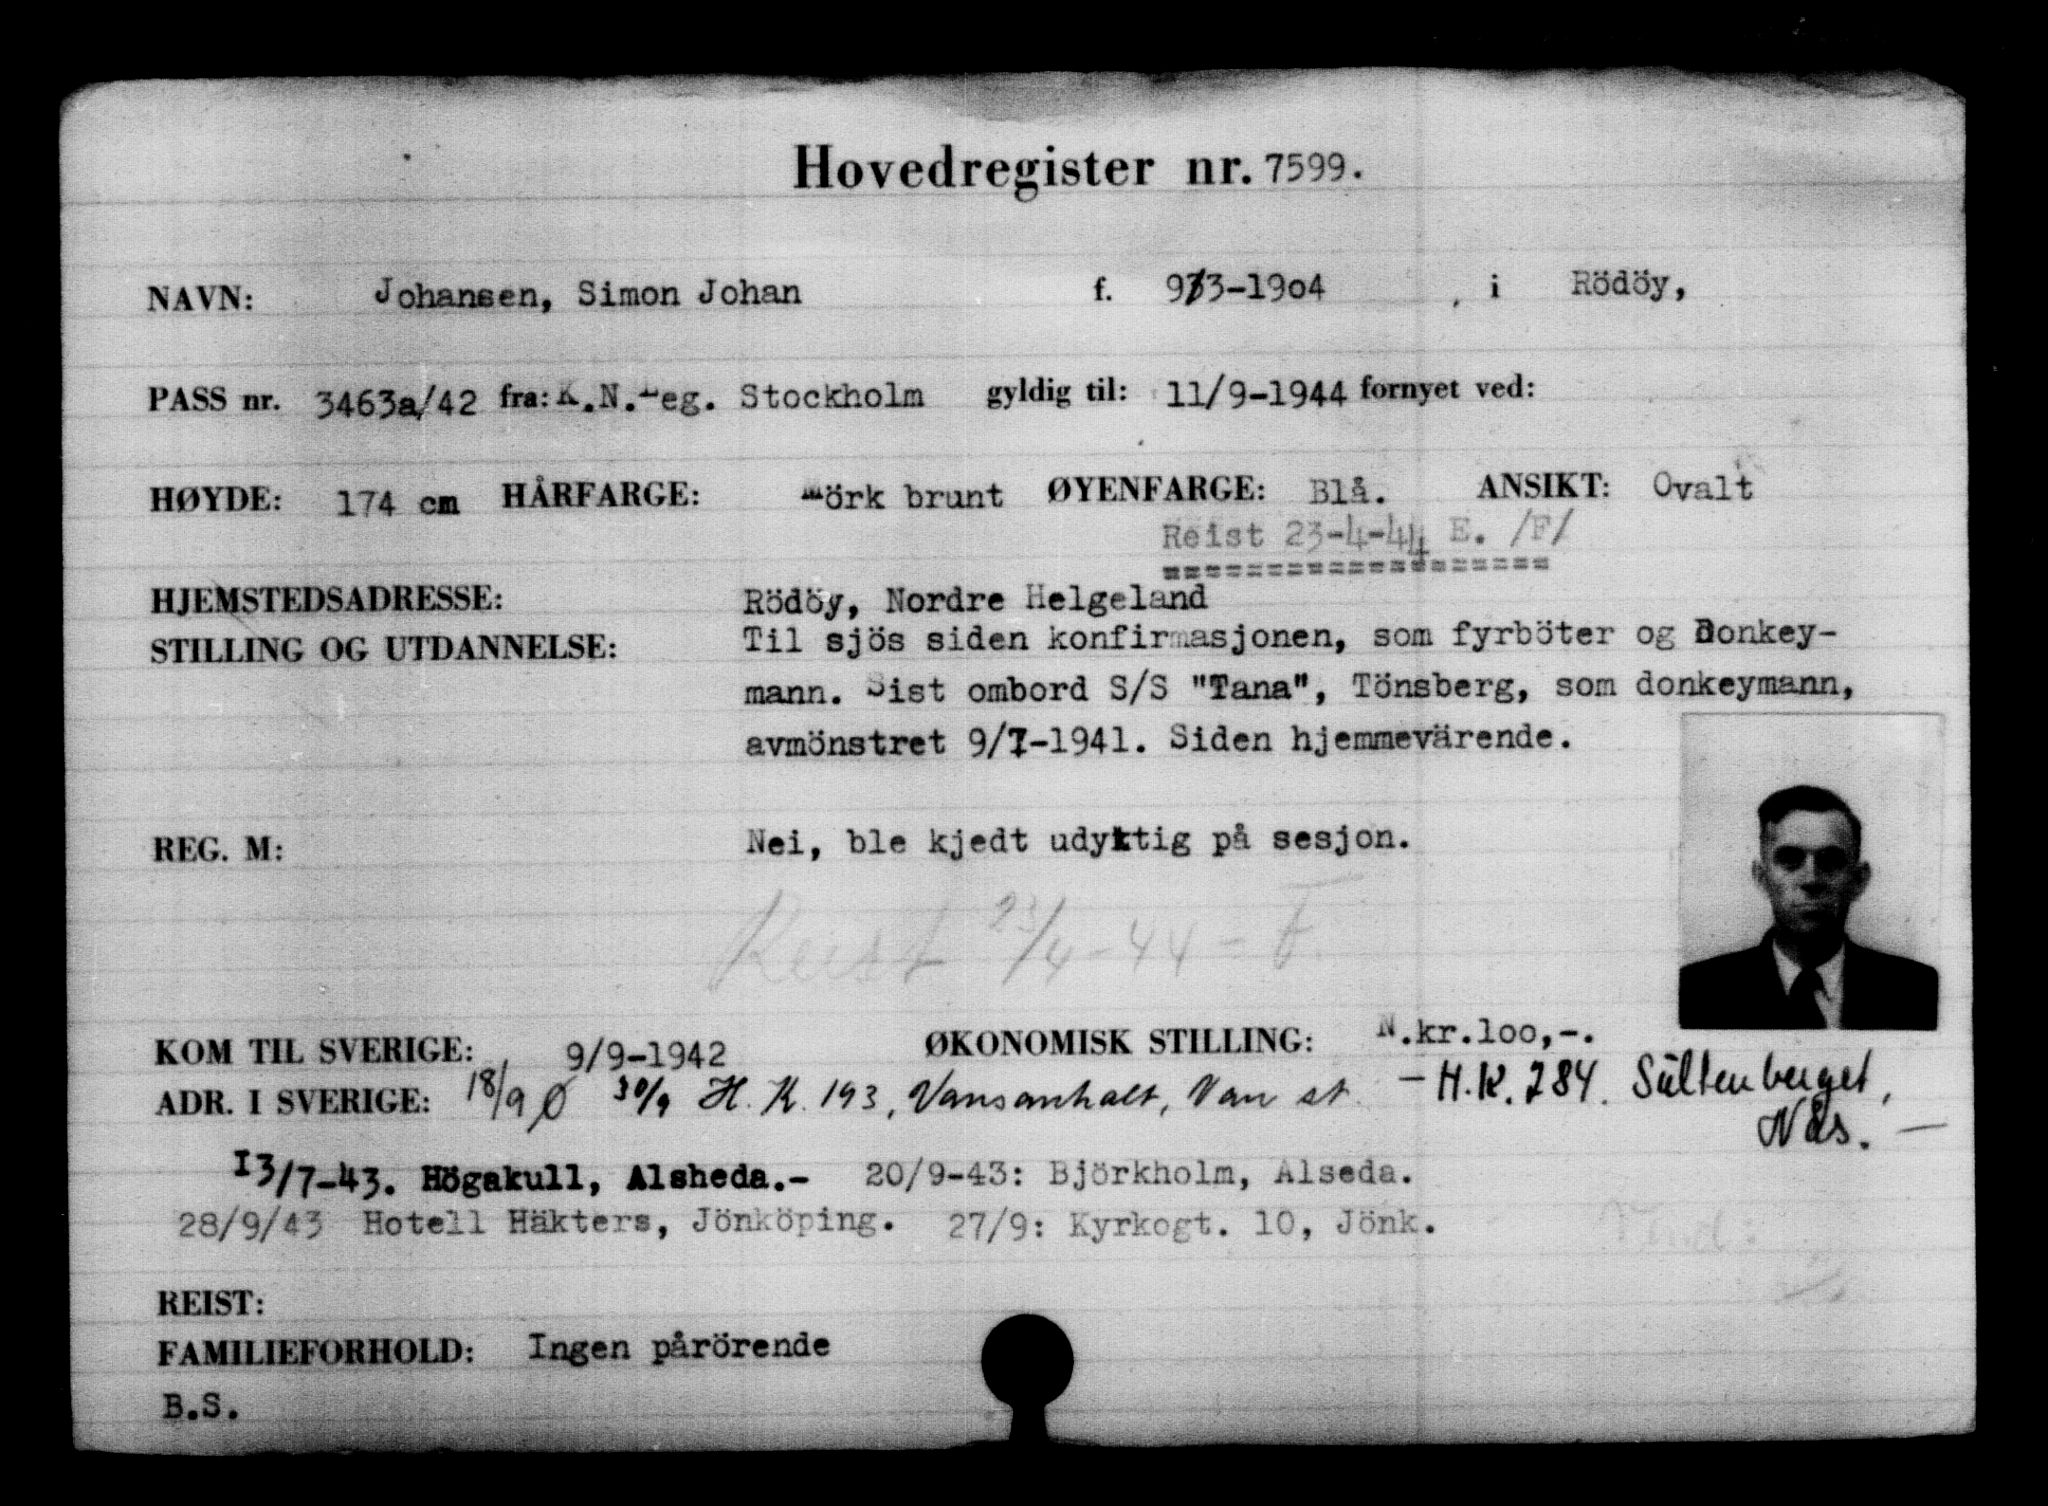 Hovedregister nr. 7599.
NAVN: Johansen, Simon Johan f. 9/3-1904 , i Rödöy,
PASS nr. 3463a/42 fra: K.N.Leg. Stockholm gyldig til: 11/9-1944 fornyet ved:
HØYDE: 174 cm HÅRFARGE: mörk brunt ØYENFARGE: Blå. ANSIKT: Ovalt
Reist 23-4-44 E. /F/
==================
HJEMSTEDSADRESSE: Rödöy, Nordre Helgeland
STILLING OG UTDANNELSE: Til sjös siden konfirmasjonen, som fyrböter og Donkey-
mann. Sist ombord S/S "Tana", Tönsberg, som donkeymann,
avmönstret 9/7-1941. Siden hjemmevärende.
REG. M: Nei, ble kjedt udyktig på sesjon.
Reist 23/4-44 = F.
KOM TIL SVERIGE: 9/9-1942 ØKONOMISK STILLING: N.kr.loo,-.
ADR. I SVERIGE: 18/9 Ø 30/9 H.K. 193, Vansanhalt, Van st. - H.K. 284. Sültenberget,
Nås. -
I3/7-43. Högakull, Alsheda.- 20/9-43: Björkholm, Alseda.
28/9/43 Hotell Häkters, Jönköping. 27/9: Kyrkogt. 10, Jönk.
REIST:
FAMILIEFORHOLD: Ingen pårörende
B.S.